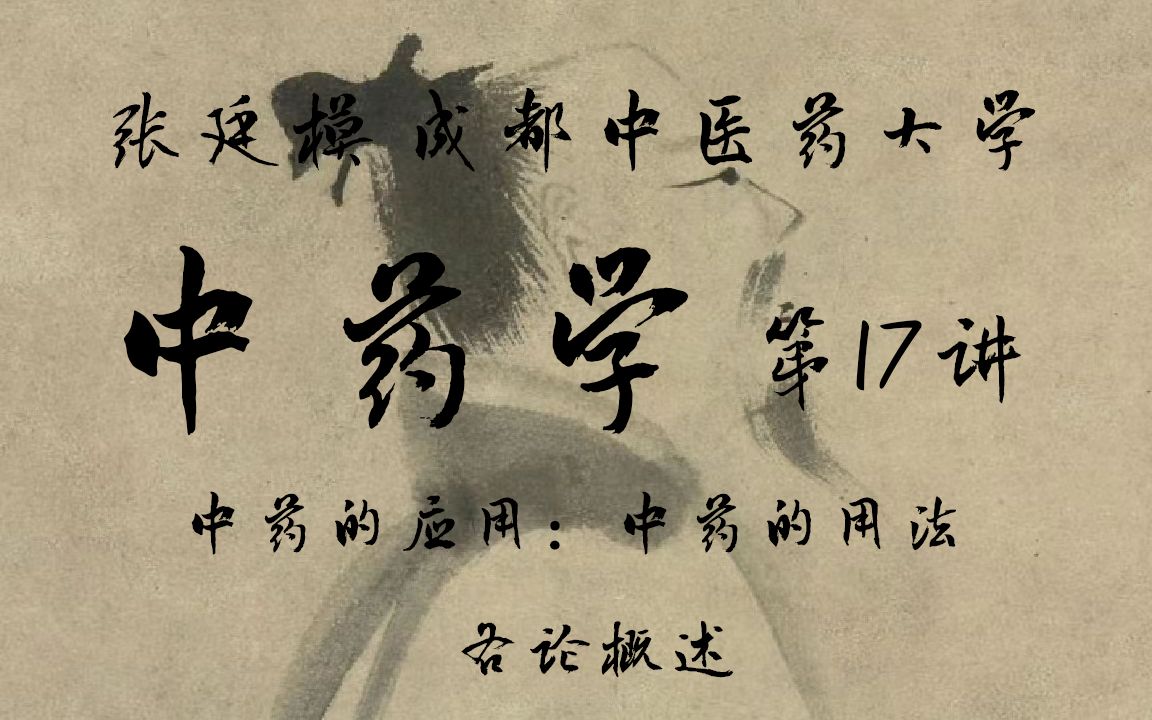 张廷模成都中医药大学
中药学 第17讲
中药的应用：中药的用法
各论概述